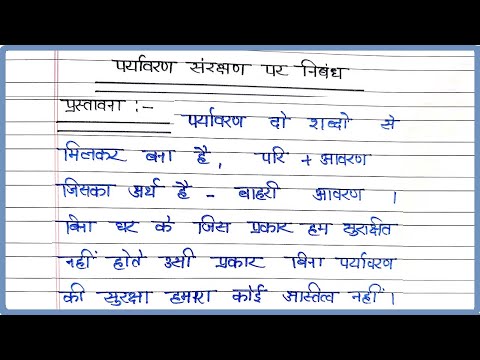 पर्यावरण संरक्षण पर निबंध
प्रस्तावना :-
पर्यावरण दो शब्दो से
मिलकर बना है, परि + आवरण
जिसका अर्थ है - बाहरी आवरण ।
बिना घर के जिस प्रकार हम सुरक्षित
नहीं होते उसी प्रकार बिना पर्यावरण
की सुरक्षा हमारा कोई अस्तित्व नहीं ।